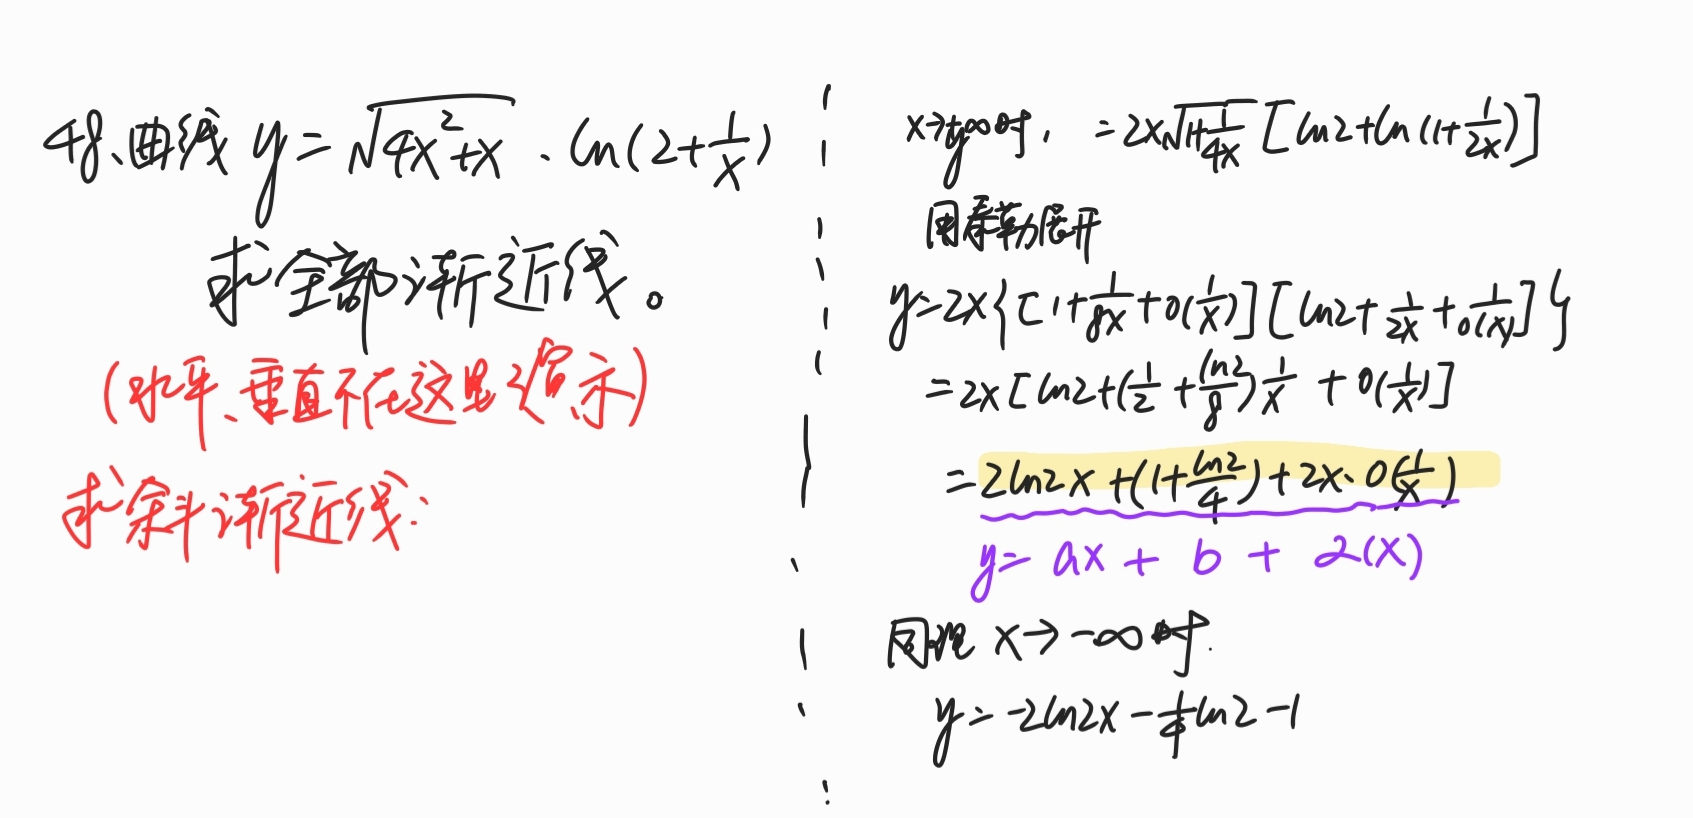 48、曲线 y=√(4x²+x) · ln(2+1/x)
求全部渐近线。
(水平、垂直不在这里演示)
求斜渐近线:
x→+∞时, y=2x√(1+1/4x) [ln2+ln(1+1/2x)]
用泰勒展开
y=2x{[1+1/8x+o(1/x)][ln2+1/2x+o(1/x)]}
=2x[ln2+(1/2+ln2/8)1/x+o(1/x)]
=2ln2x+(1+ln2/4)+2x·o(1/x)
y=ax+b+2(x)
同理 x→-∞时.
y=-2ln2x-1/4ln2-1